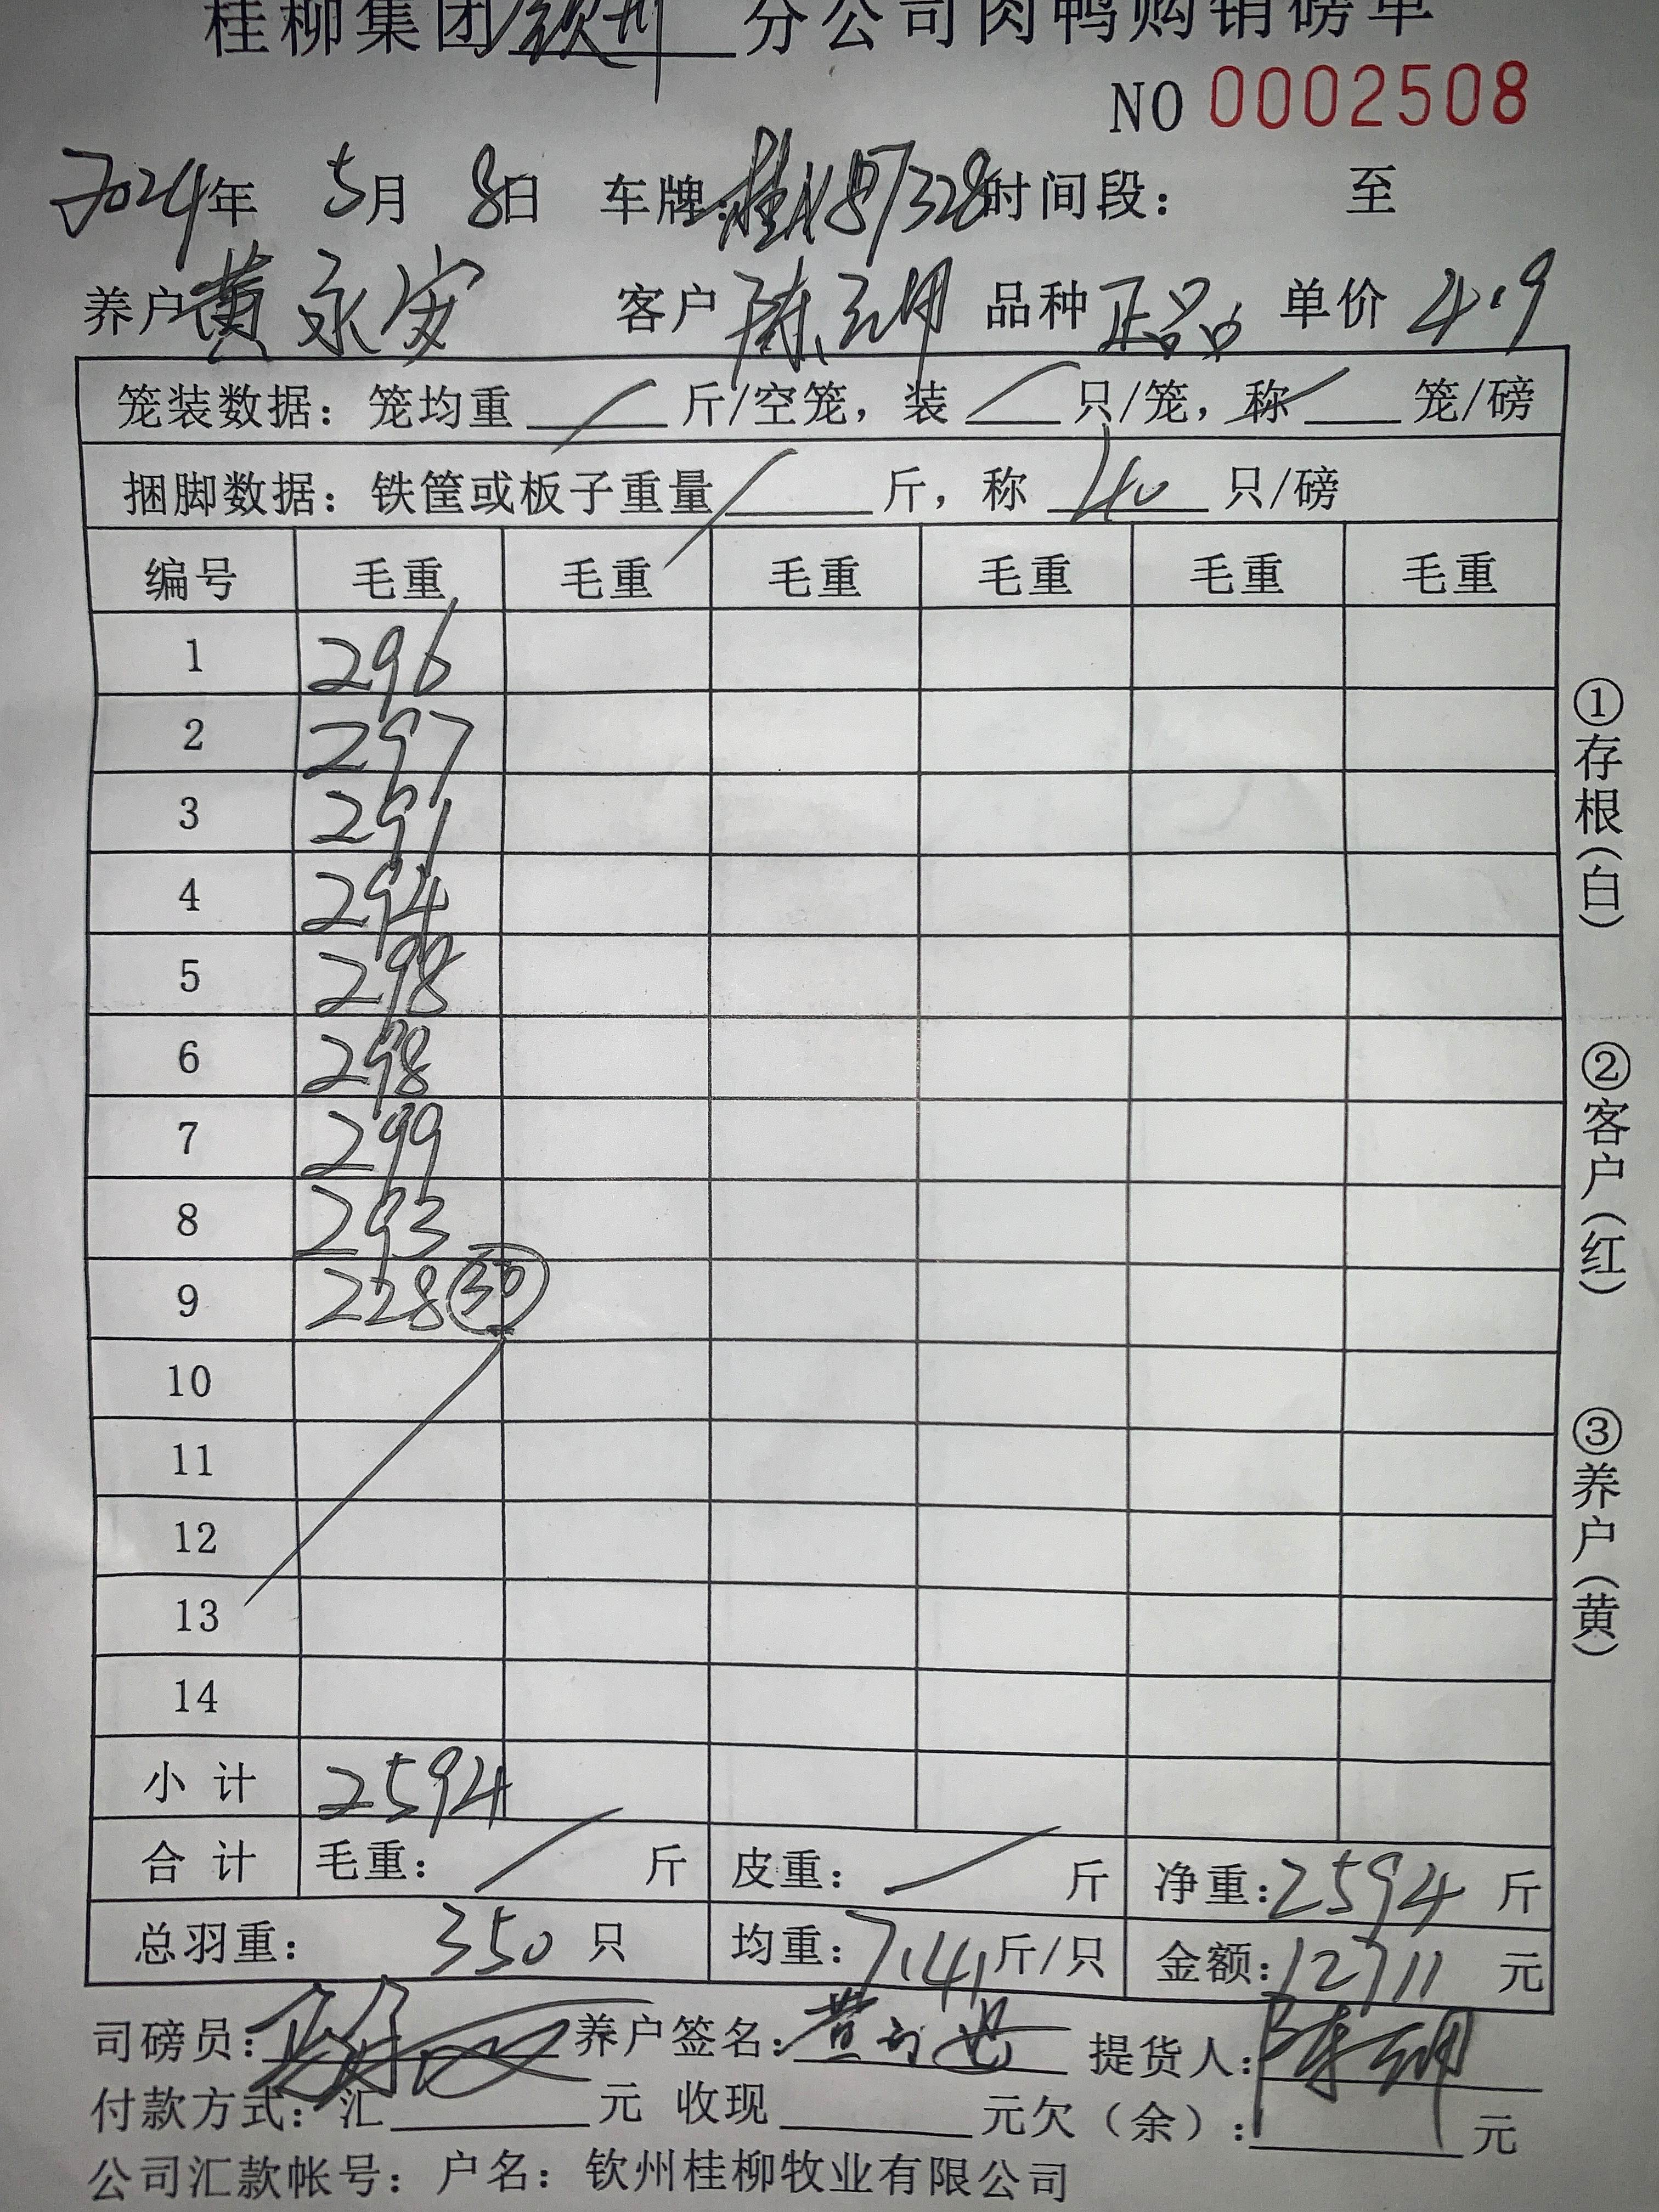 桂柳集团钦州分公司肉鸭购销磅单
NO 0002508
2024年 5月 8日 车牌: 时间段: 至
养户黄永安 客户 陈云明 品种 正品 单价 4.9
笼装数据: 笼均重 / 斤/空笼, 装 / 只/笼, 称 / 笼/磅
捆脚数据: 铁筐或板子重量 / 斤, 称 40 只/磅
编号 毛重 毛重 毛重 毛重 毛重 毛重
1 296
2 297
3 291
4 294
5 298
6 298
7 299
8 293
9 228 30
10
11
12
13
14
小计 2594
合计 毛重: / 斤 皮重: / 斤 净重:2594 斤
总羽重: 350 只 均重:7.41斤/只 金额:12711 元
司磅员: 养户签名: 提货人:陈云明
付款方式: 汇 元 收现 元欠(余): 元
公司汇款帐号: 户名: 钦州桂柳牧业有限公司
①存根(白)
②客户(红)
③养户(黄)